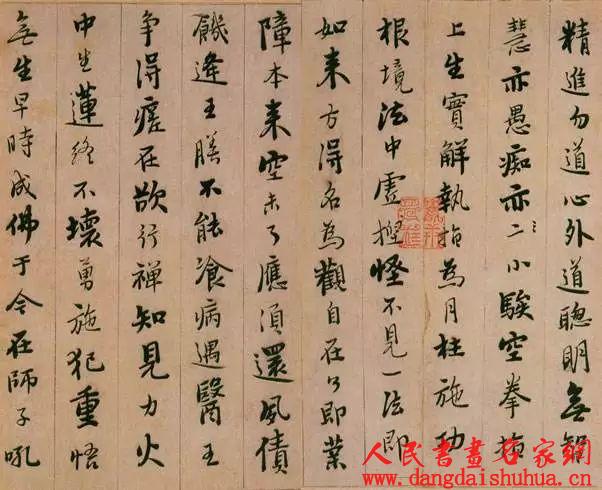 精進勿道心外道聰明無智
慧亦愚痴亦二小騃空拳指
上生實解執指為月枉施功
根境法中虛揑怪不見一法即
如来方得名為觀自在了即業
障本来空未了應須還夙債
饑逢王膳不能飡病遇醫王
争得瘥在欲行禪知見力火
中生蓮終不壞勇施犯重悟
無生早時成佛于今在師子吼
人民書畫名家網
www.dangdaishuhua.cn